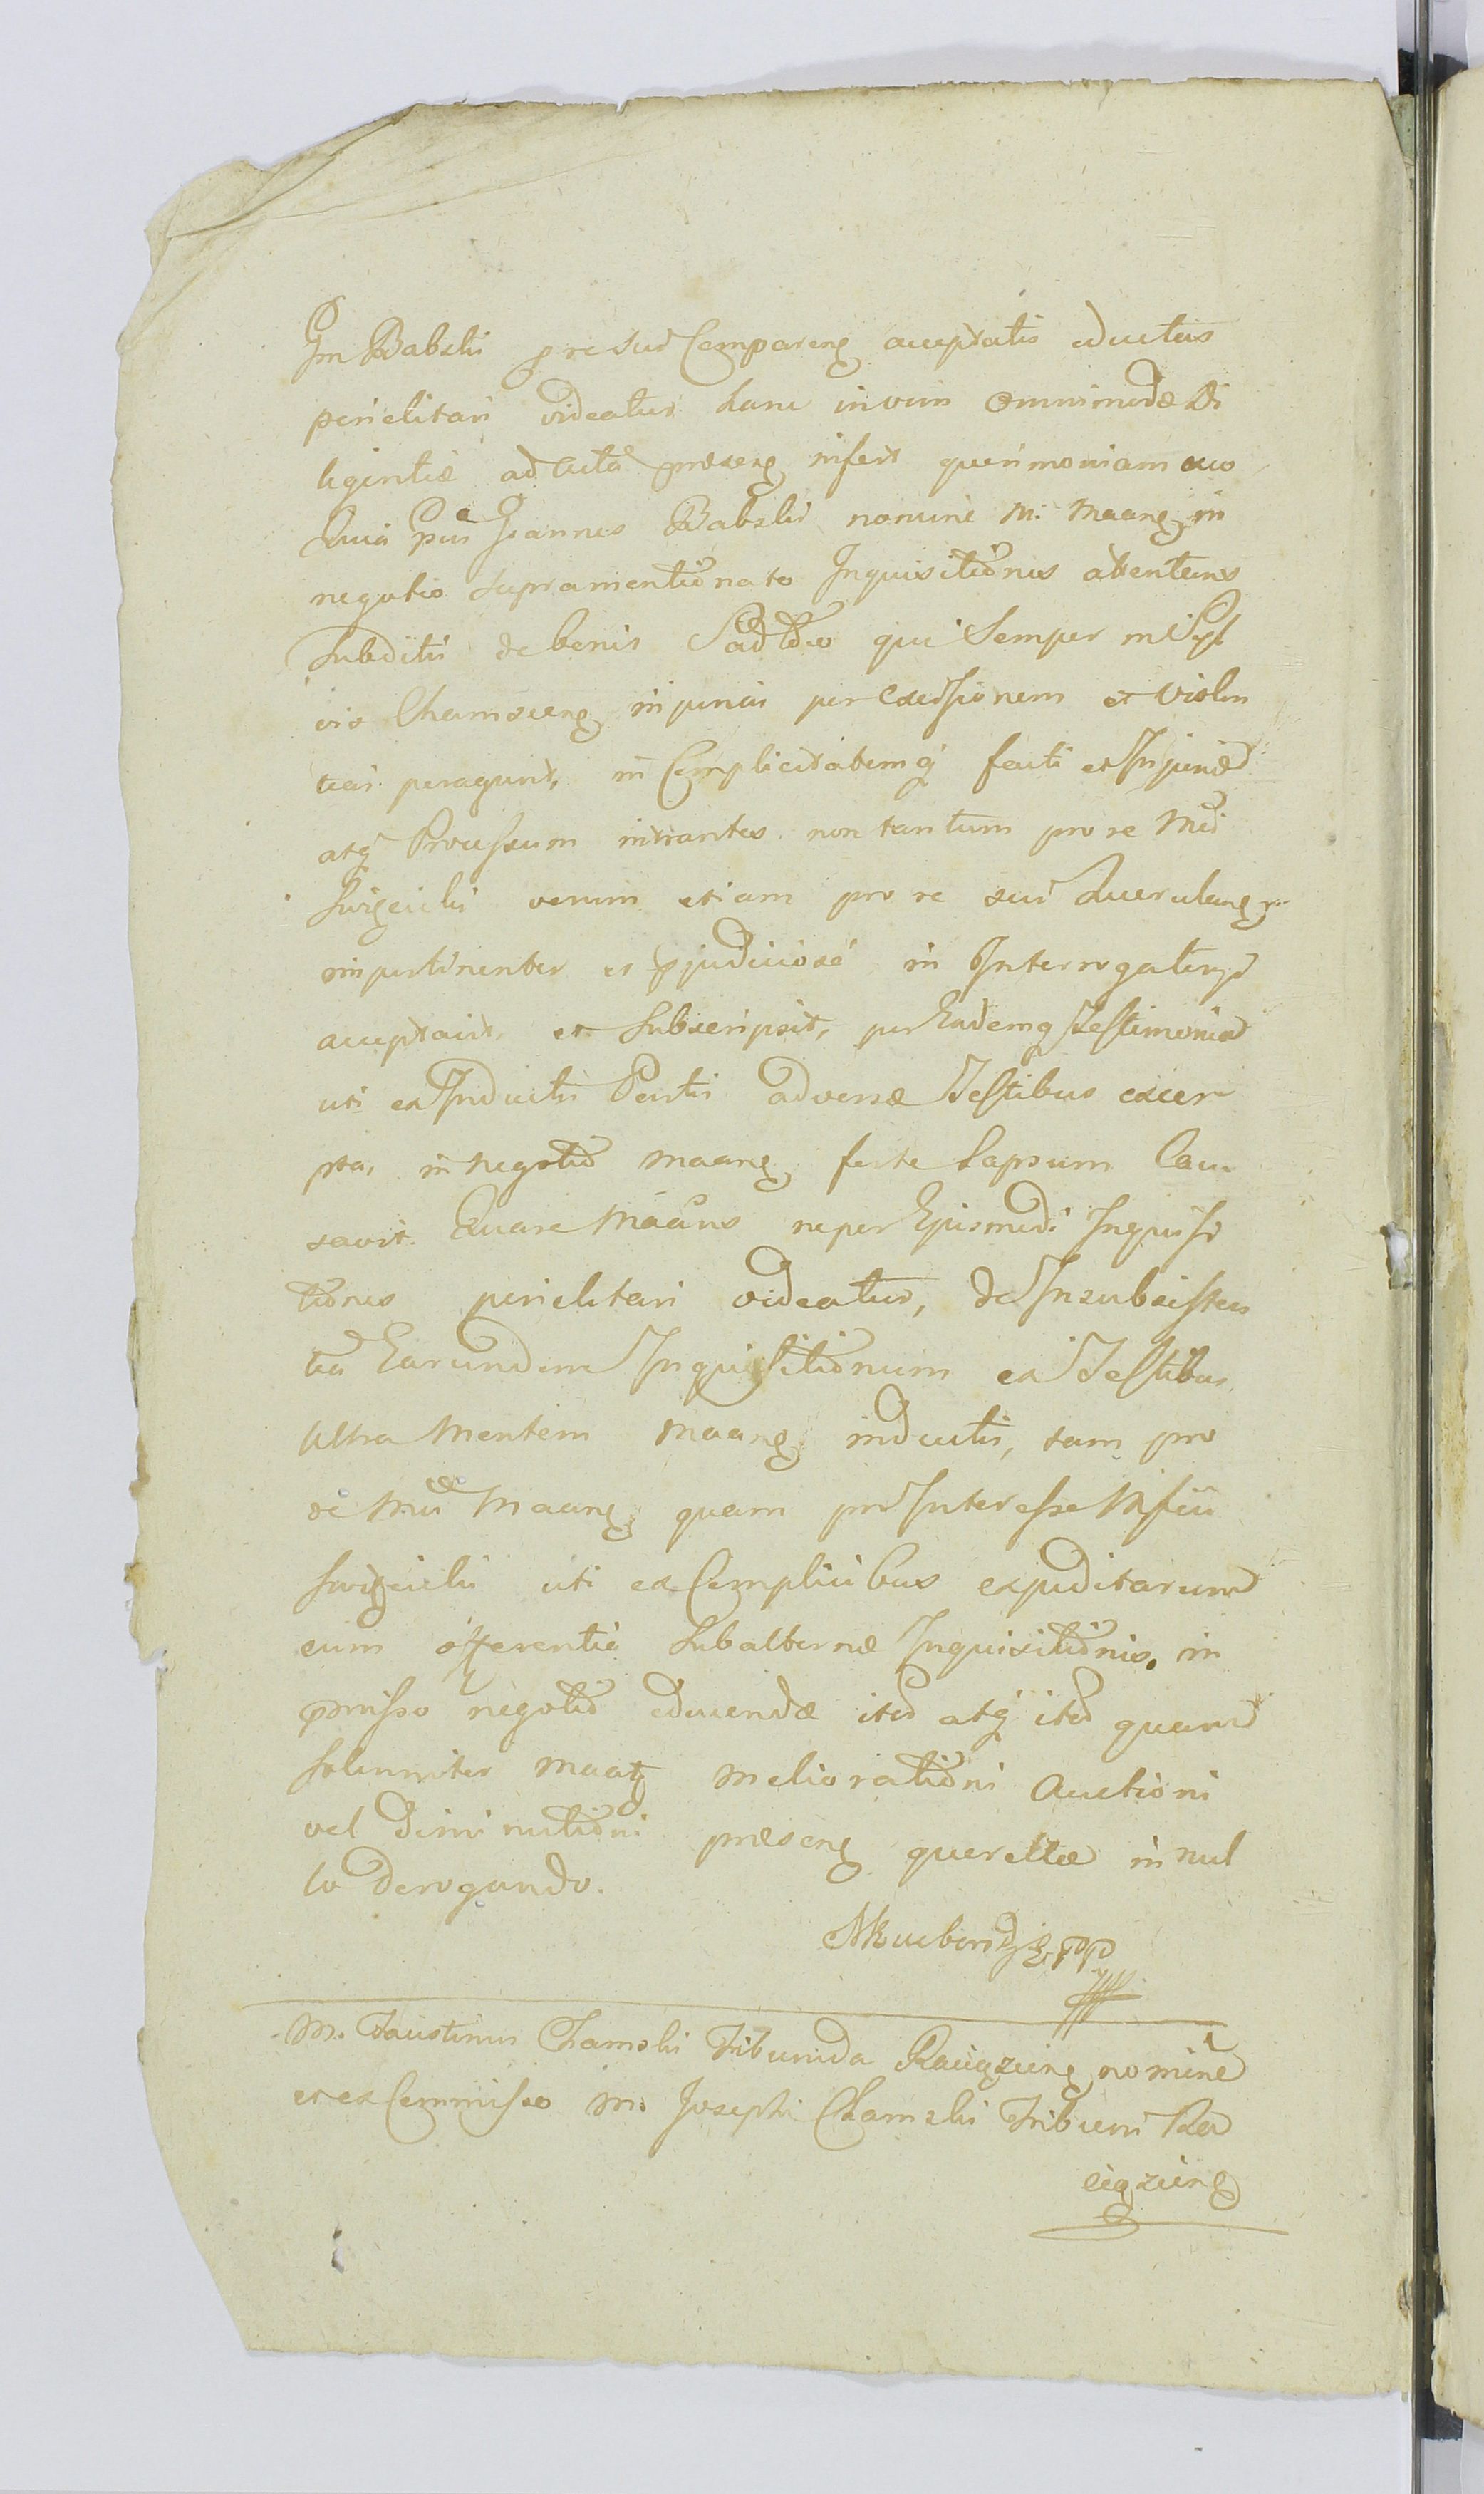 Gm Babski pro sua Comparens acceptatis eductus
periclitari videatur hanc in vim omnimodæ Di
ligentiæ ad acta præsens infert querimoniam
Quia Joannes Babski nomine M. Maans in
negotio supramentionato Inquisitionis
Subditis de bonis qui Semper in Syl
vis Chamscens injurias per Excessionem et violen
tias peragunt, in Complicitatemq facti et Injuriæ
atq Processum intrantes non tantum pro re
verum etiam pro re sua Querulans
impertinenter et pjudiciose in Interrogatorys
acceptavit, et Subscripsit, per Eademq Testimonia
uti ex Inductis Partis adversæ Testibus excer
pta, in negotio Maans forte Lapsum Cau
savit. Quare Maans ne per Ejusmodi Inquisi
tiones periclitari videatur, de Insubsisten
tia Earundem Inquisitionum ex Testibus
Ultra Mentem Maans inductis, tam pro
re Maans quam pro Interesse
uti ex Complicibus expeditarum
cum offerentia Subalternæ Inquisitionis, in
pmisso negotio educendæ iterū atq iterū quam
solenniter Maats meliorationi Auctioni
vel Diminutioni præsens querellæ in nul
lo Derogando.
M. Faustinus Chamski Tribunida Raciąziens nomine
et ex Commisso M. Josephi Chamski Tribuni Ra
ciąziens